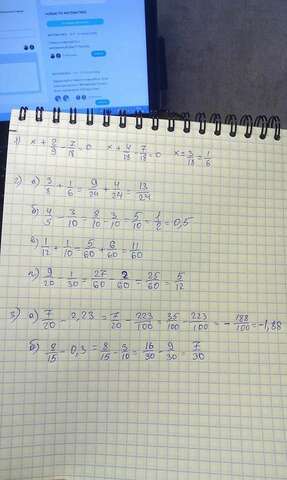 1) x + 2/9 - 7/18 = 0   x + 4/18 - 7/18 = 0   x = 3/18 = 1/6
2) а) 3/8 + 1/6 = 9/24 + 4/24 = 13/24
б) 4/5 - 3/10 = 8/10 - 3/10 = 5/10 = 1/2 = 0,5
в) 1/12 + 1/10 = 5/60 + 6/60 = 11/60
г) 9/20 - 1/30 = 27/60 - 2/60 = 25/60 = 5/12
3) а) 7/20 - 2,23 = 7/20 - 223/100 = 35/100 - 223/100 = - 188/100 = -1,88
б) 8/15 - 0,3 = 8/15 - 3/10 = 16/30 - 9/30 = 7/30